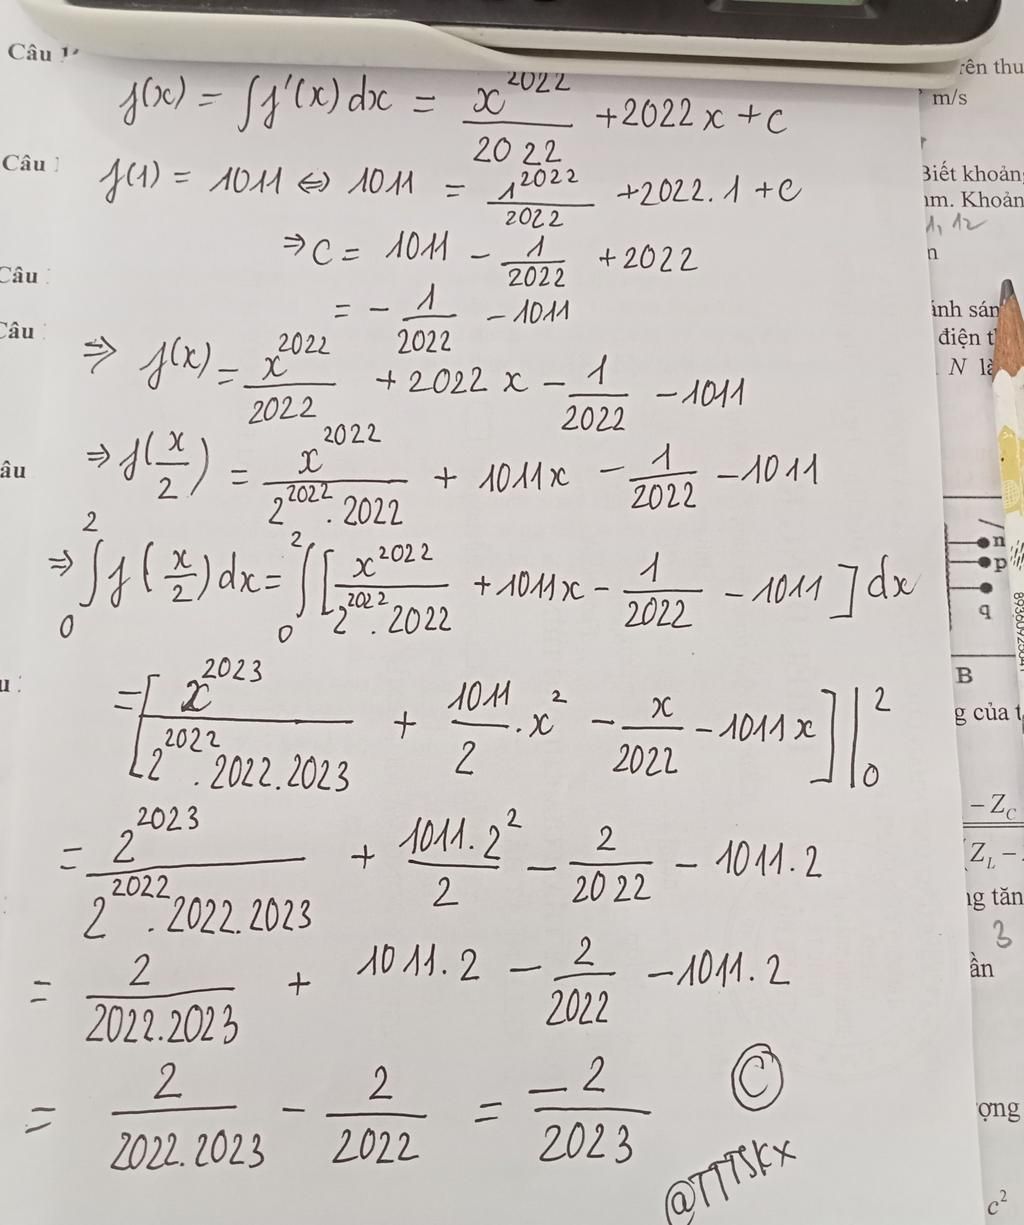 Câu
f(x) = ∫f'(x)dx = x^2022/2022 + 2022x + C
f(1) = 1011 ⇔ 1011 = 1^2022/2022 + 2022.1 + C
⇒ C = 1011 - 1/2022 + 2022
= - 1/2022 - 1011
⇒ f(x) = x^2022/2022 + 2022x - 1/2022 - 1011
⇒ f(x/2) = x^2022/(2^2022.2022) + 1011x - 1/2022 - 1011
⇒ ∫₀² f(x/2)dx = ∫₀² [x^2022/(2^2022.2022) + 1011x - 1/2022 - 1011]dx
= [x^2023/(2^2022.2022.2023) + 1011/2.x² - x/2022 - 1011x]|₀²
= 2^2023/(2^2022.2022.2023) + 1011.2²/2 - 2/2022 - 1011.2
= 2/(2022.2023) + 1011.2 - 2/2022 - 1011.2
= 2/(2022.2023) - 2/2022 = -2/2023
Ⓒ
@TTTSKX
Câu
Câu
Câu
âu
u :
rên thu
m/s
Biết khoảng
m. Khoản
1, 12
n
ánh sán
điện t
N là
n
p
q
B
g của t
- Z_C
Z_L -
ng tăn
3
ần
ợng
c²